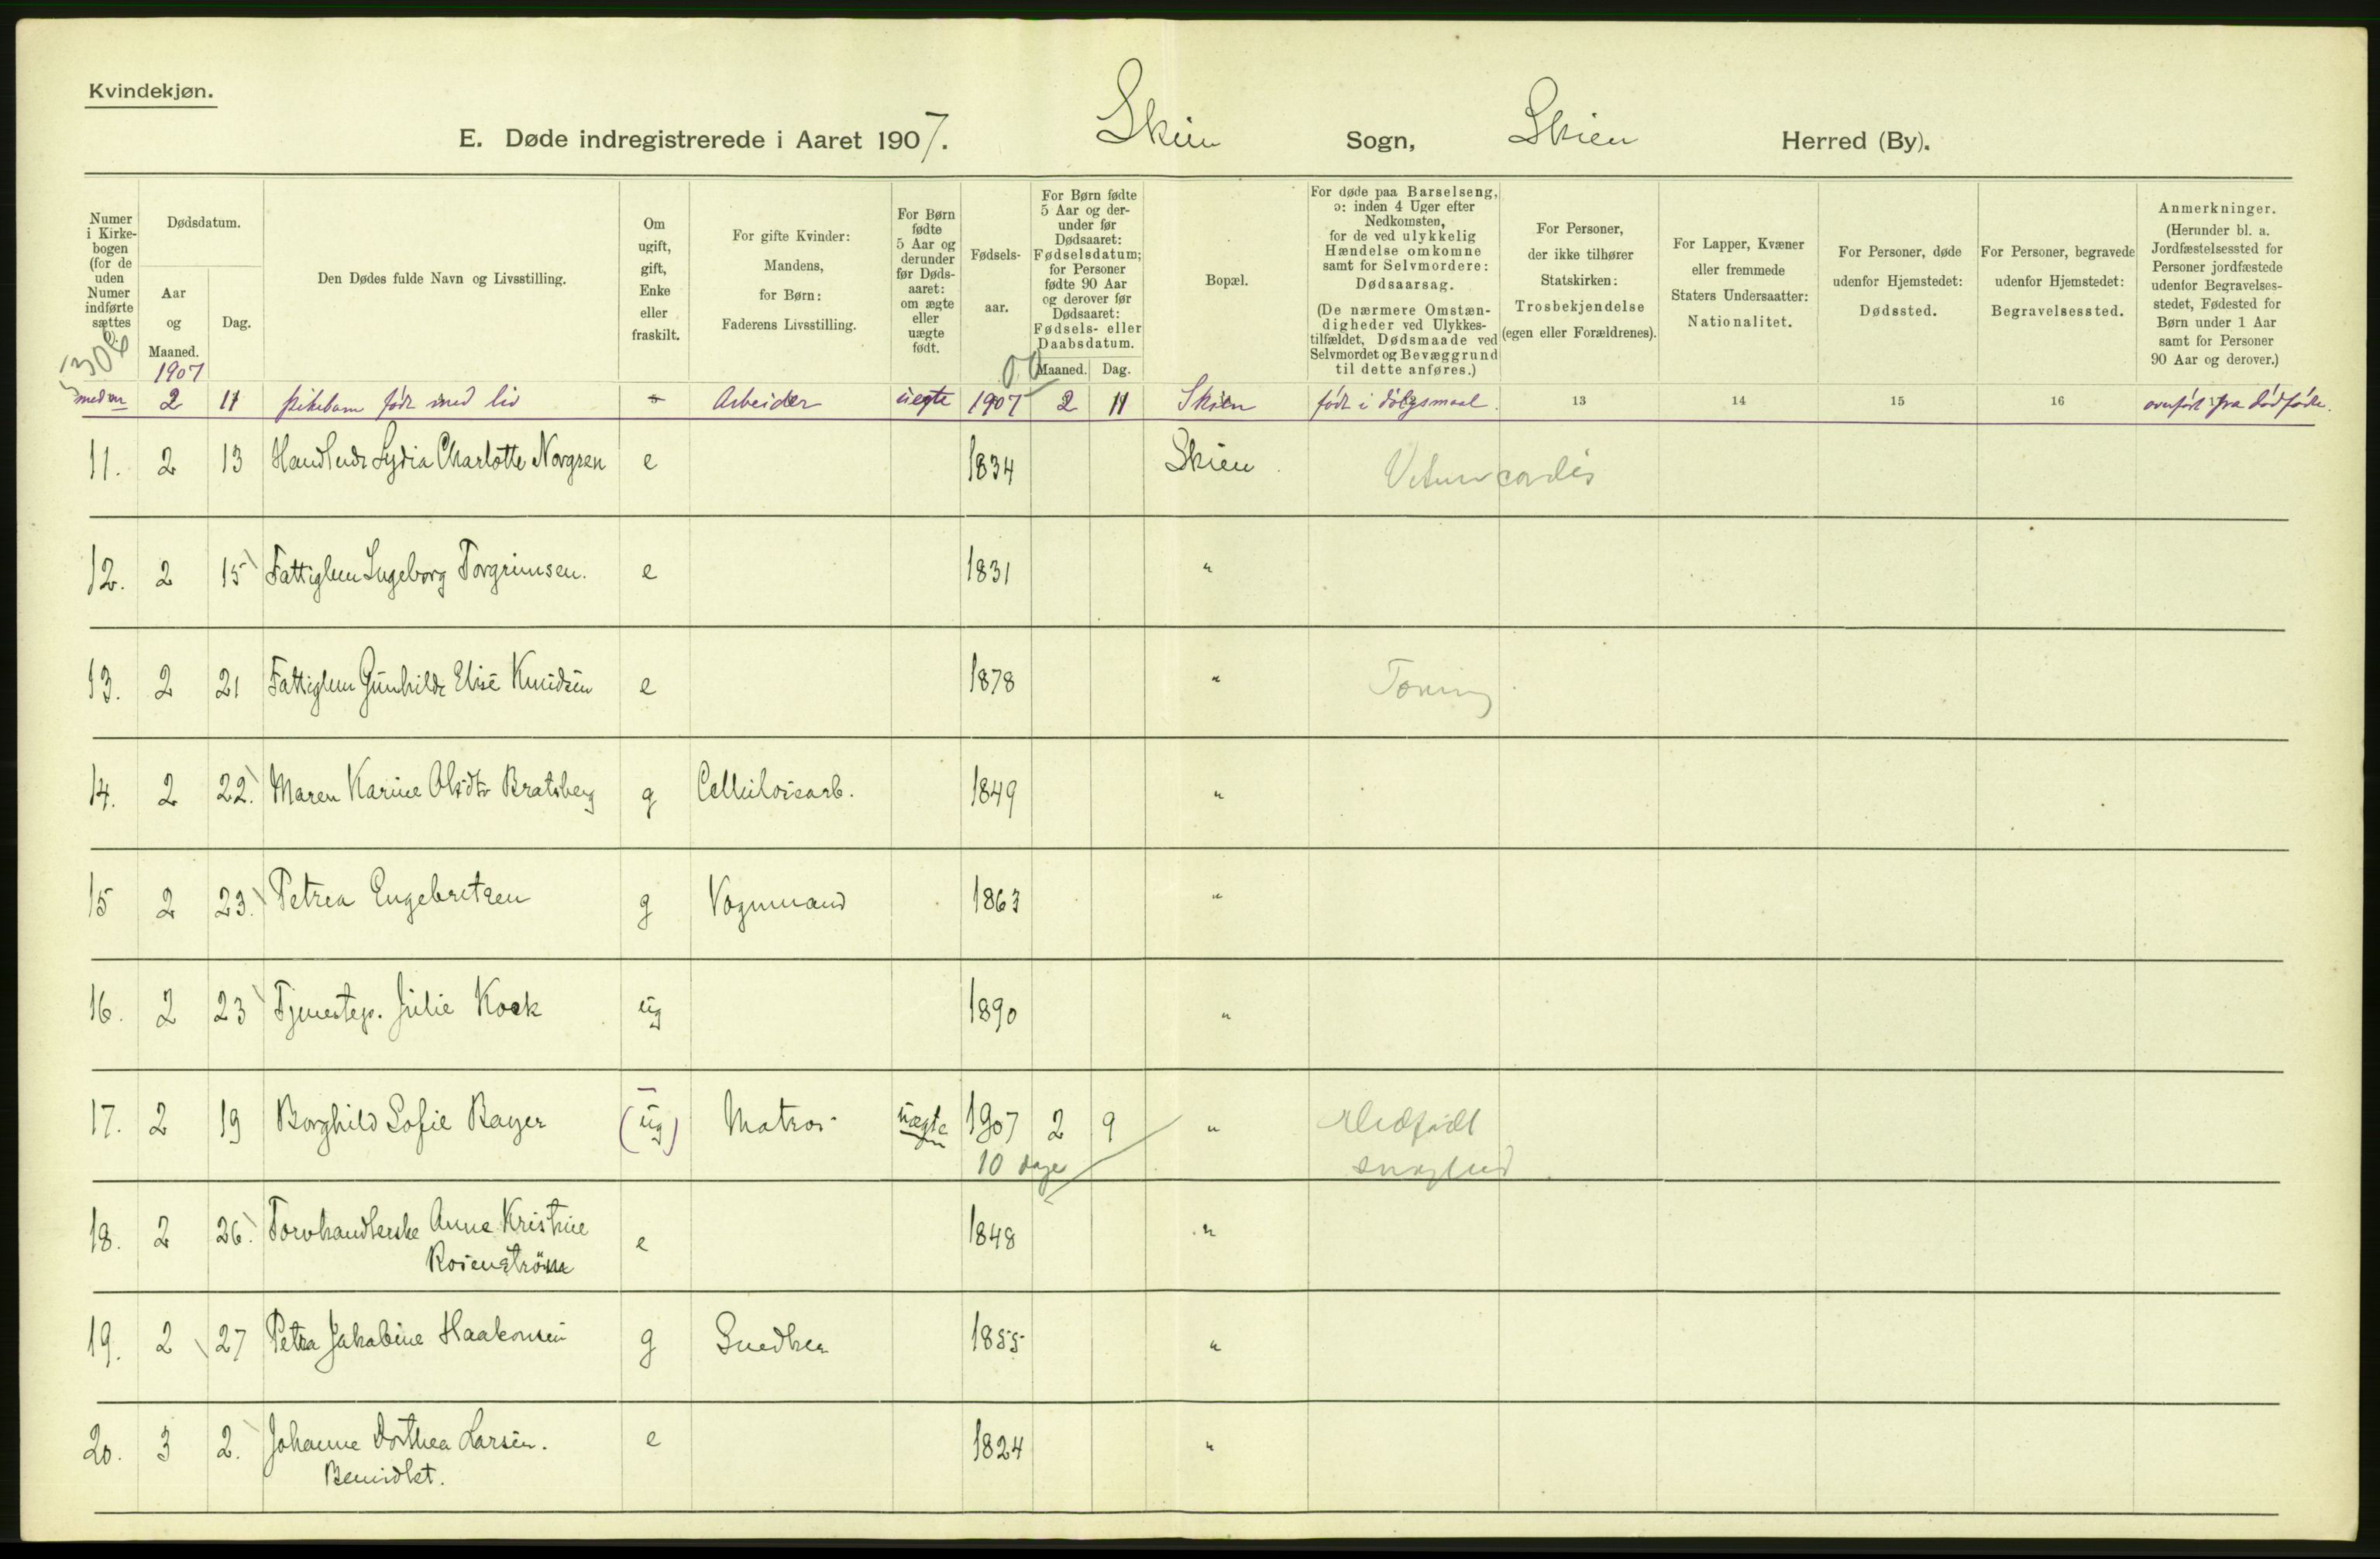 Kvindekjøn.
E. Døde indregistrerede i Aaret 1907. Skien Sogn, Skien Herred (By).
Numer i Kirkebogen (for de uden Numer indførte sættes
Dødsdatum.
Aar og Maaned.
Dag.
Den Dødes fulde Navn og Livsstilling.
Om ugift, gift, Enke eller fraskilt.
For gifte Kvinder: Mandens, for Børn: Faderens Livsstilling.
For Børn fødte 5 Aar og derunder før Døds-aaret: om ægte eller uægte født.
Fødsels-aar.
For Børn fødte 5 Aar og der-under før Dødsaaret: Fødselsdatum; for Personer fødte 90 Aar og derover før Dødsaaret: Fødsels- eller Daabsdatum.
Maaned. Dag.
Bopæl.
For døde paa Barselseng, ɔ: inden 4 Uger efter Nedkomsten, for de ved ulykkelig Hændelse omkomne samt for Selvmordere: Dødsaarsag.
(De nærmere Omstæn-digheder ved Ulykkes-tilfældet, Dødsmaade ved Selvmordet og Bevæggrund til dette anføres.)
For Personer, der ikke tilhører Statskirken: Trosbekjendelse (egen eller Forældrenes).
For Lapper, Kvæner eller fremmede Staters Undersaatter: Nationalitet.
For Personer, døde udenfor Hjemstedet: Dødssted.
For Personer, begravede udenfor Hjemstedet: Begravelsessted.
Anmerkninger. (Herunder bl. a. Jordfæstelsessted for Personer jordfæstede udenfor Begravelses-stedet, Fødested for Børn under 1 Aar samt for Personer 90 Aar og derover.)
1907
2 11 pikebarn født med liv Arbeider uegte 1907 2 11 Skien født i dølgsmaal. 13 14 15 16 overført fra dødfødte.
11. 2 13 Lydia Charlotte Norgren e 1834 Skien. cordis
12. 2 15 Fattiglem Ingeborg Torgrimsen. e 1831 "
13. 2 21 Fattiglem Gunhilde Elise Knudsen e 1878 " Tæring
14. 2 22. Maren Karine Olsdtr Bratsberg g Cellulosearb. 1849 "
15 2 23. Petrea Engebretsen g Vognmand 1863 "
16. 2 23 Tjenestep. Julie Kock ug 1890 "
17. 2 19 Borghild Sofie Bayer (ug) Matros uægte 1907 2 9 " Medfødt
10 dage svaghed
18. 2 26. Torvhandlerske Anne Kristine e 1848 "
Rosenström
19. 2 27 Petra Jakobine Haakonsen g Snedker 1855 "
20. 3 2. Johanne Dorthea Larsen. e 1824 "
Bemidlet.